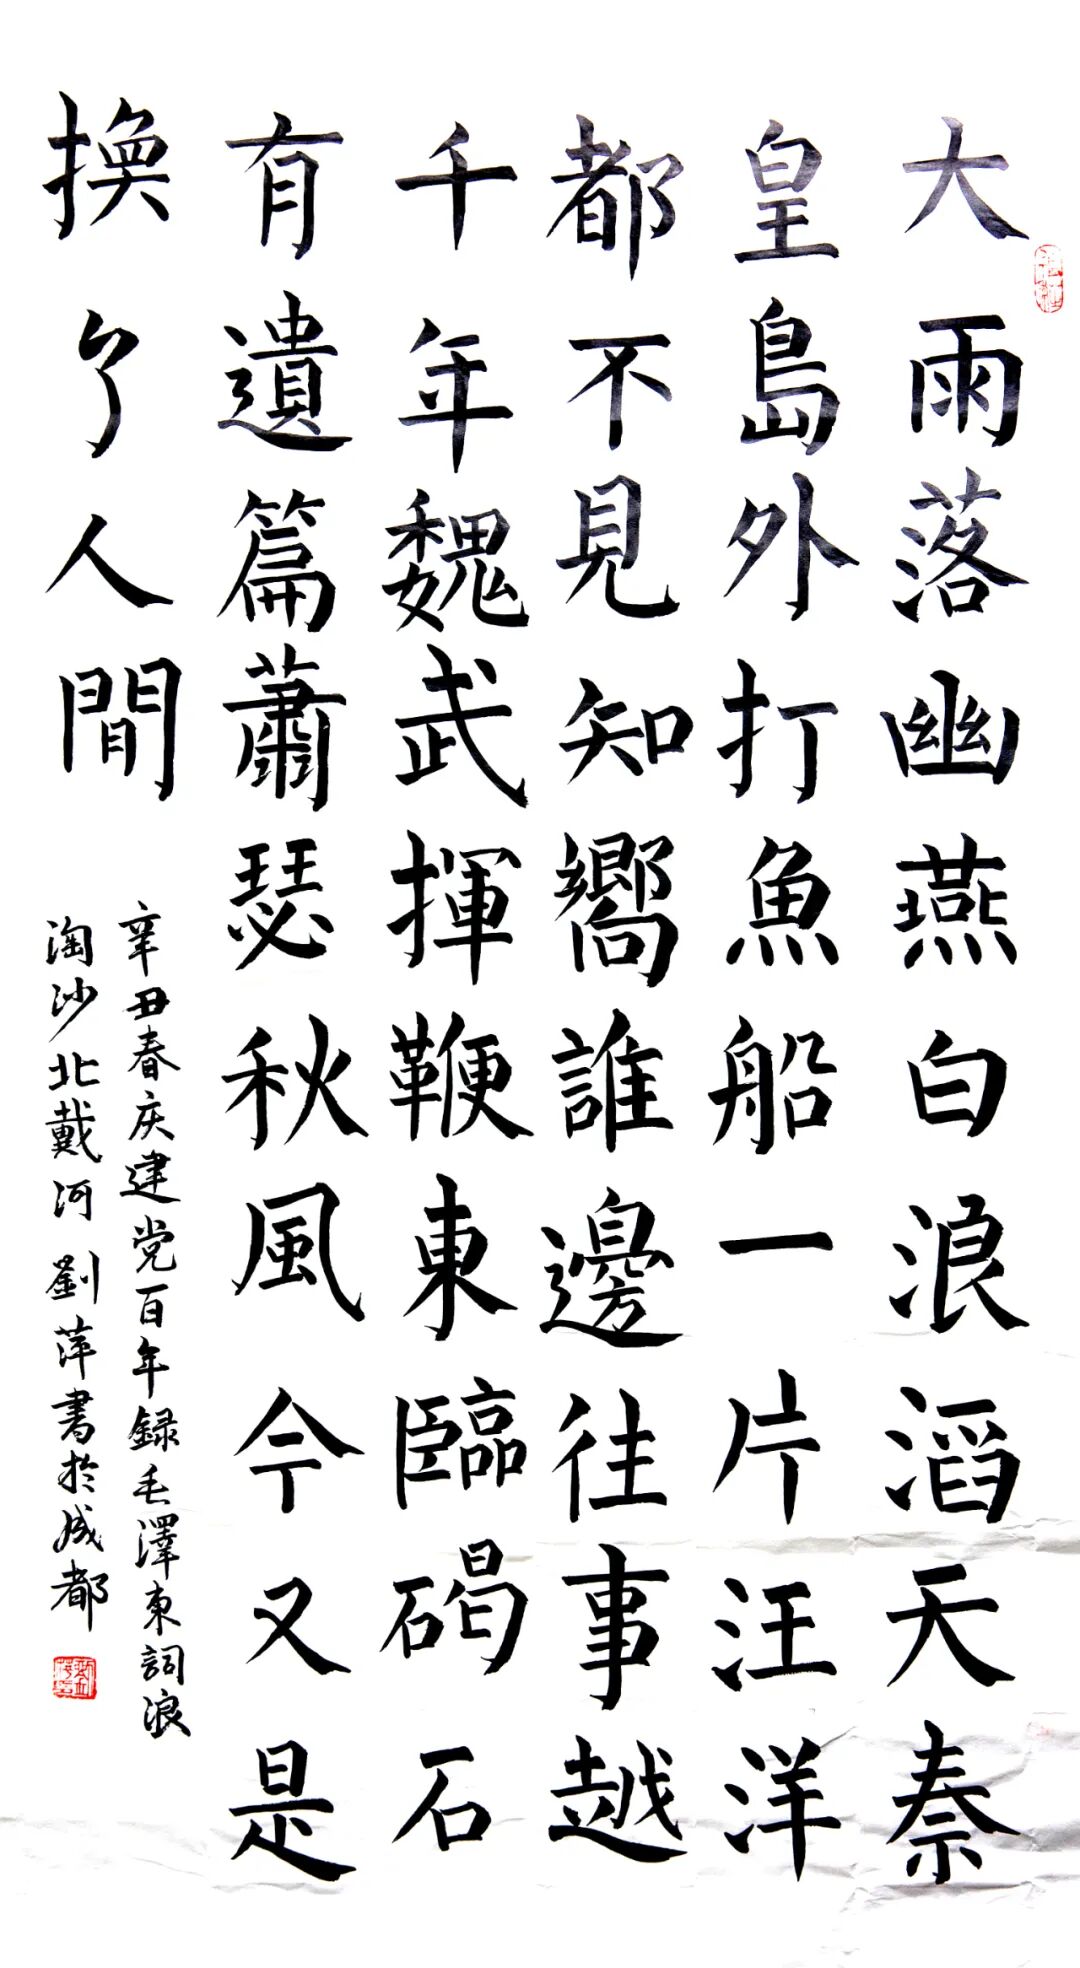 大雨落幽燕白浪滔天秦
皇島外打魚船一片汪洋
都不見知嚮誰邊往事越
千年魏武揮鞭東臨碣石
有遺篇蕭瑟秋風今又是
換了人間
辛丑春庆建党百年録毛澤東詞浪
淘沙北戴河 劉萍書於成都